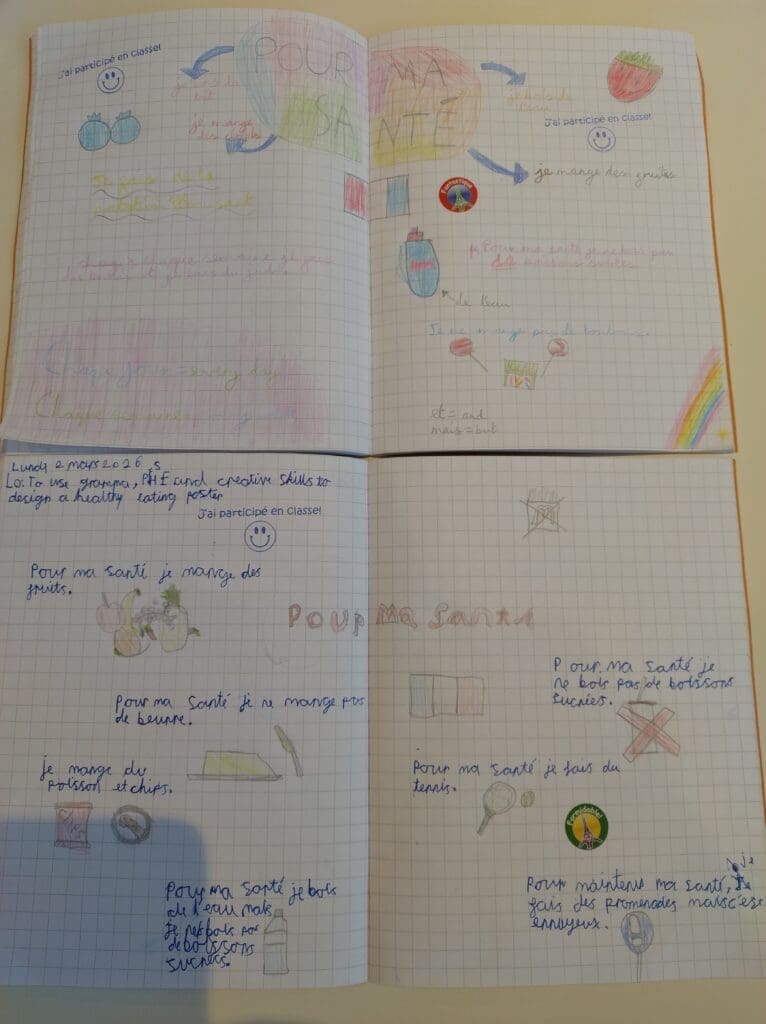 J'ai participé en classe!
POUR MA
SANTÉ
je bois du
lait
je mange
des
je bois de
l'eau
J'ai participé en classe!
je mange des fruites
Fantastique
Je joue de la
chaque semaine je joue
et je fais du judo
Pour ma santé je ne bois pas
de boissons sucrées
de l'eau
Je ne mange pas de bonbons.
Chaque jour = every day
Chaque semaine
et = and
mais = but
Lundi 2 mars 2026
Lo: To use gramma, PHE and creative skills to
design a healthy eating poster
J'ai participé en classe!
Pour ma santé je mange des
fruits.
Pour Ma Santé
Pour ma santé je ne mange pas
de beurre.
Pour ma santé je
ne bois pas de boissons
sucrées.
je mange du
poisson et chips.
Pour ma santé je fais du
tennis.
Formidable!
Pour ma santé je bois
de l'eau mais
je ne bois pas
de boissons
sucrées.
Pour maintenir ma santé, je
fais des promenades mais c'est
ennuyeux.